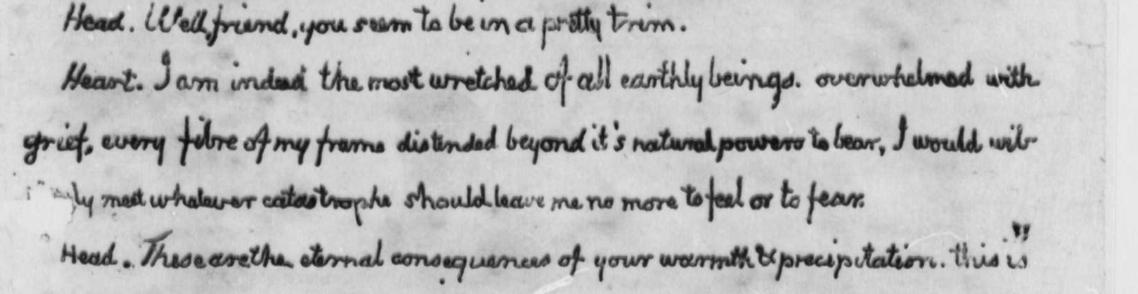 Head. Well, friend, you seem to be in a pretty trim.
Heart. I am indeed the most wretched of all earthly beings. overwhelmed with
grief, every fibre of my frame distended beyond it's natural powers to bear, I would wil-
ly meet whatever catastrophe should leave me no more to feel or to fear.
Head. These are the eternal consequences of your warmth & precipitation. this is